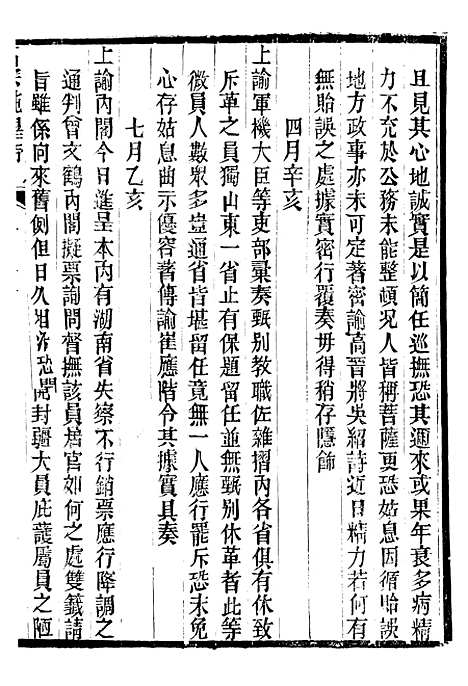 且見其心地誠實是以簡任巡撫恐其邇來或果年衰多病精
力不充於公務未能整頓況人皆稱菩薩更恐姑息因循貽誤
地方政事亦未可定著密諭高晉將吳紹詩近日精力若何有
無貽誤之處據實密行覆奏毋得稍存隱飾
四月辛亥
上諭軍機大臣等吏部彙奏甄別教職佐雜摺內各省俱有休致
斥革之員獨山東一省止有保題留任並無甄別休革者此等
微員人數眾多豈通省皆堪留任竟無一人應行罷斥恐未免
心存姑息曲示優容著傳諭崔應階令其據實具奏
七月乙亥
上諭內閣今日進呈本內有湖南省失察不行銷票應行降調之
通判曾文鶴內閣擬票詢問督撫該員居官如何之處雙籤請
旨雖係向來舊例但日久相沿恐開封疆大員庇護屬員之陋